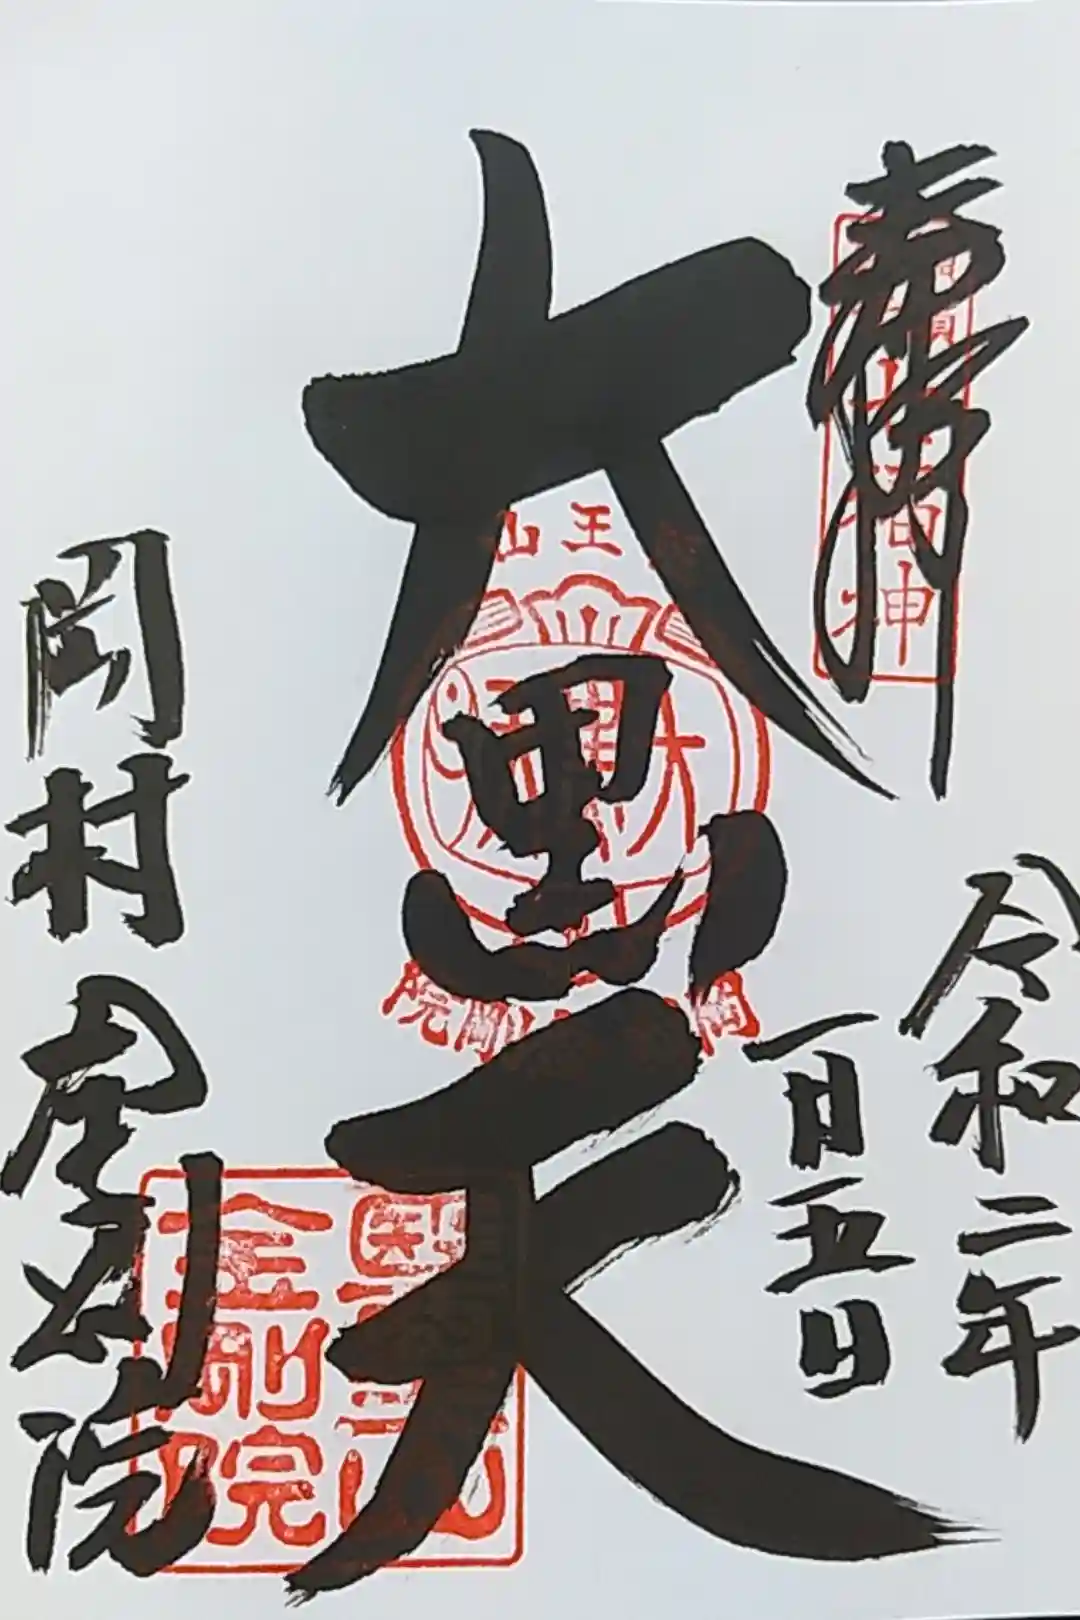 奉拝
七福神
令和二年
一月五日
大黒天
王山
大
金剛院
岡村 金剛院